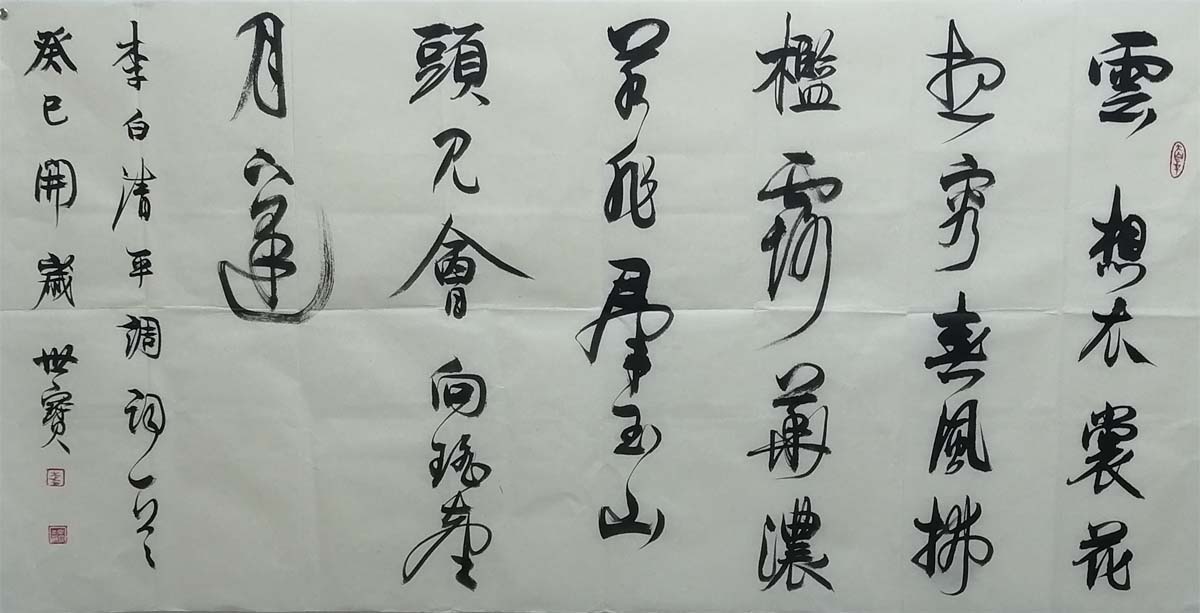 雲想衣裳花
想容春風拂
檻露華濃
若非羣玉山
頭見會向瑤臺
月下逢
李白清平調詞一首
癸巳開歲世寶